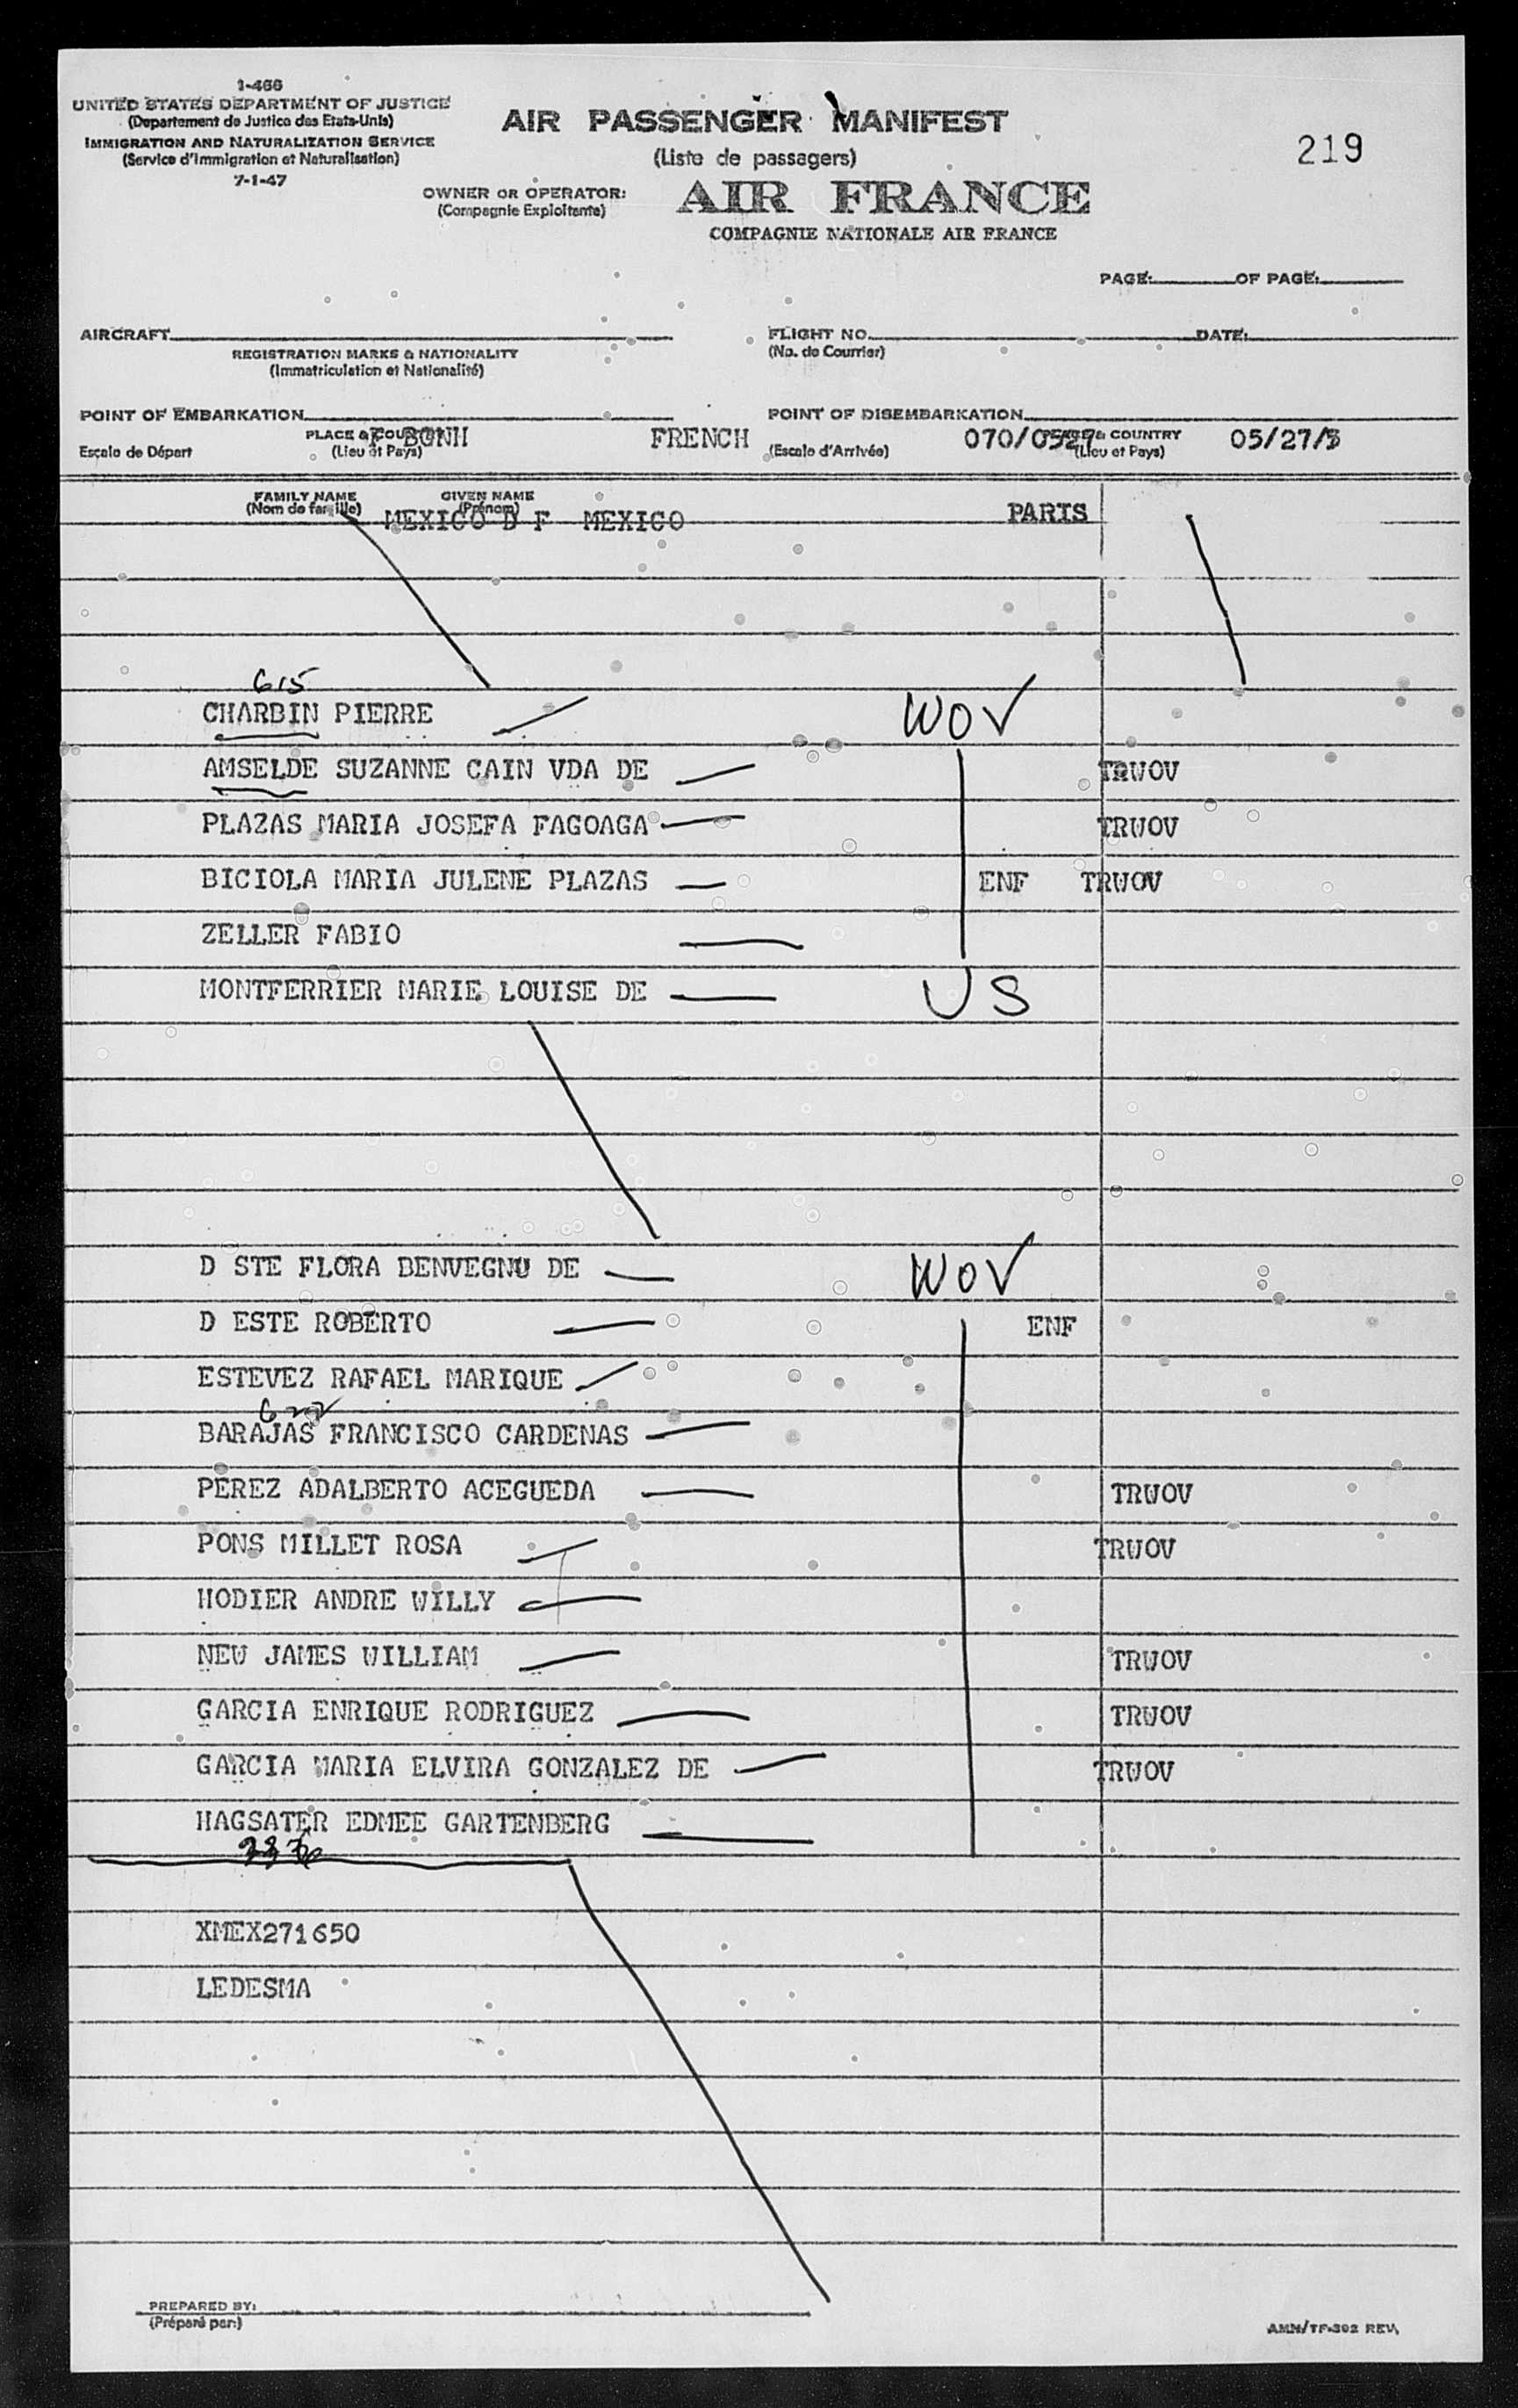 I-466
UNITED STATES DEPARTMENT OF JUSTICE
(Departement de Justice des Etats-Unis)
IMMIGRATION AND NATURALIZATION SERVICE
(Service d'Immigration et Naturalisation)
7-1-47
AIR PASSENGER MANIFEST
(Liste de passagers)
219
OWNER OR OPERATOR: AIR FRANCE
(Compagnie Exploitante)
COMPAGNIE NATIONALE AIR FRANCE
PAGE: OF PAGE:
AIRCRAFT FLIGHT NO. DATE:
REGISTRATION MARKS & NATIONALITY (No. de Courrier)
(Immatriculation et Nationalité)
POINT OF EMBARKATION POINT OF DISEMBARKATION
PLACE & COUNTRY F BONH FRENCH 070/0527 PLACE & COUNTRY 05/27/5
Escale de Départ (Lieu et Pays) (Escale d'Arrivée) (Lieu et Pays)
FAMILY NAME GIVEN NAME
(Nom de famille) (Prénom)
MEXICO D F MEXICO PARIS
615
CHARBIN PIERRE WOV
AMSELDE SUZANNE CAIN VDA DE TRWOV
PLAZAS MARIA JOSEFA FAGOAGA TRWOV
BICIOLA MARIA JULENE PLAZAS ENF TRWOV
ZELLER FABIO
MONTFERRIER MARIE LOUISE DE US
D STE FLORA BENVEGNU DE WOV
D ESTE ROBERTO ENF
ESTEVEZ RAFAEL MARIQUE
622
BARAJAS FRANCISCO CARDENAS
PEREZ ADALBERTO ACEGUEDA TRWOV
PONS MILLET ROSA TRWOV
HODIER ANDRE WILLY
NEW JAMES WILLIAM TRWOV
GARCIA ENRIQUE RODRIGUEZ TRWOV
GARCIA MARIA ELVIRA GONZALEZ DE TRWOV
HAGSATER EDMEE GARTENBERG
XMEX271650
LEDESMA
PREPARED BY:
(Préparé par:)
AMN/TF-302 REV.